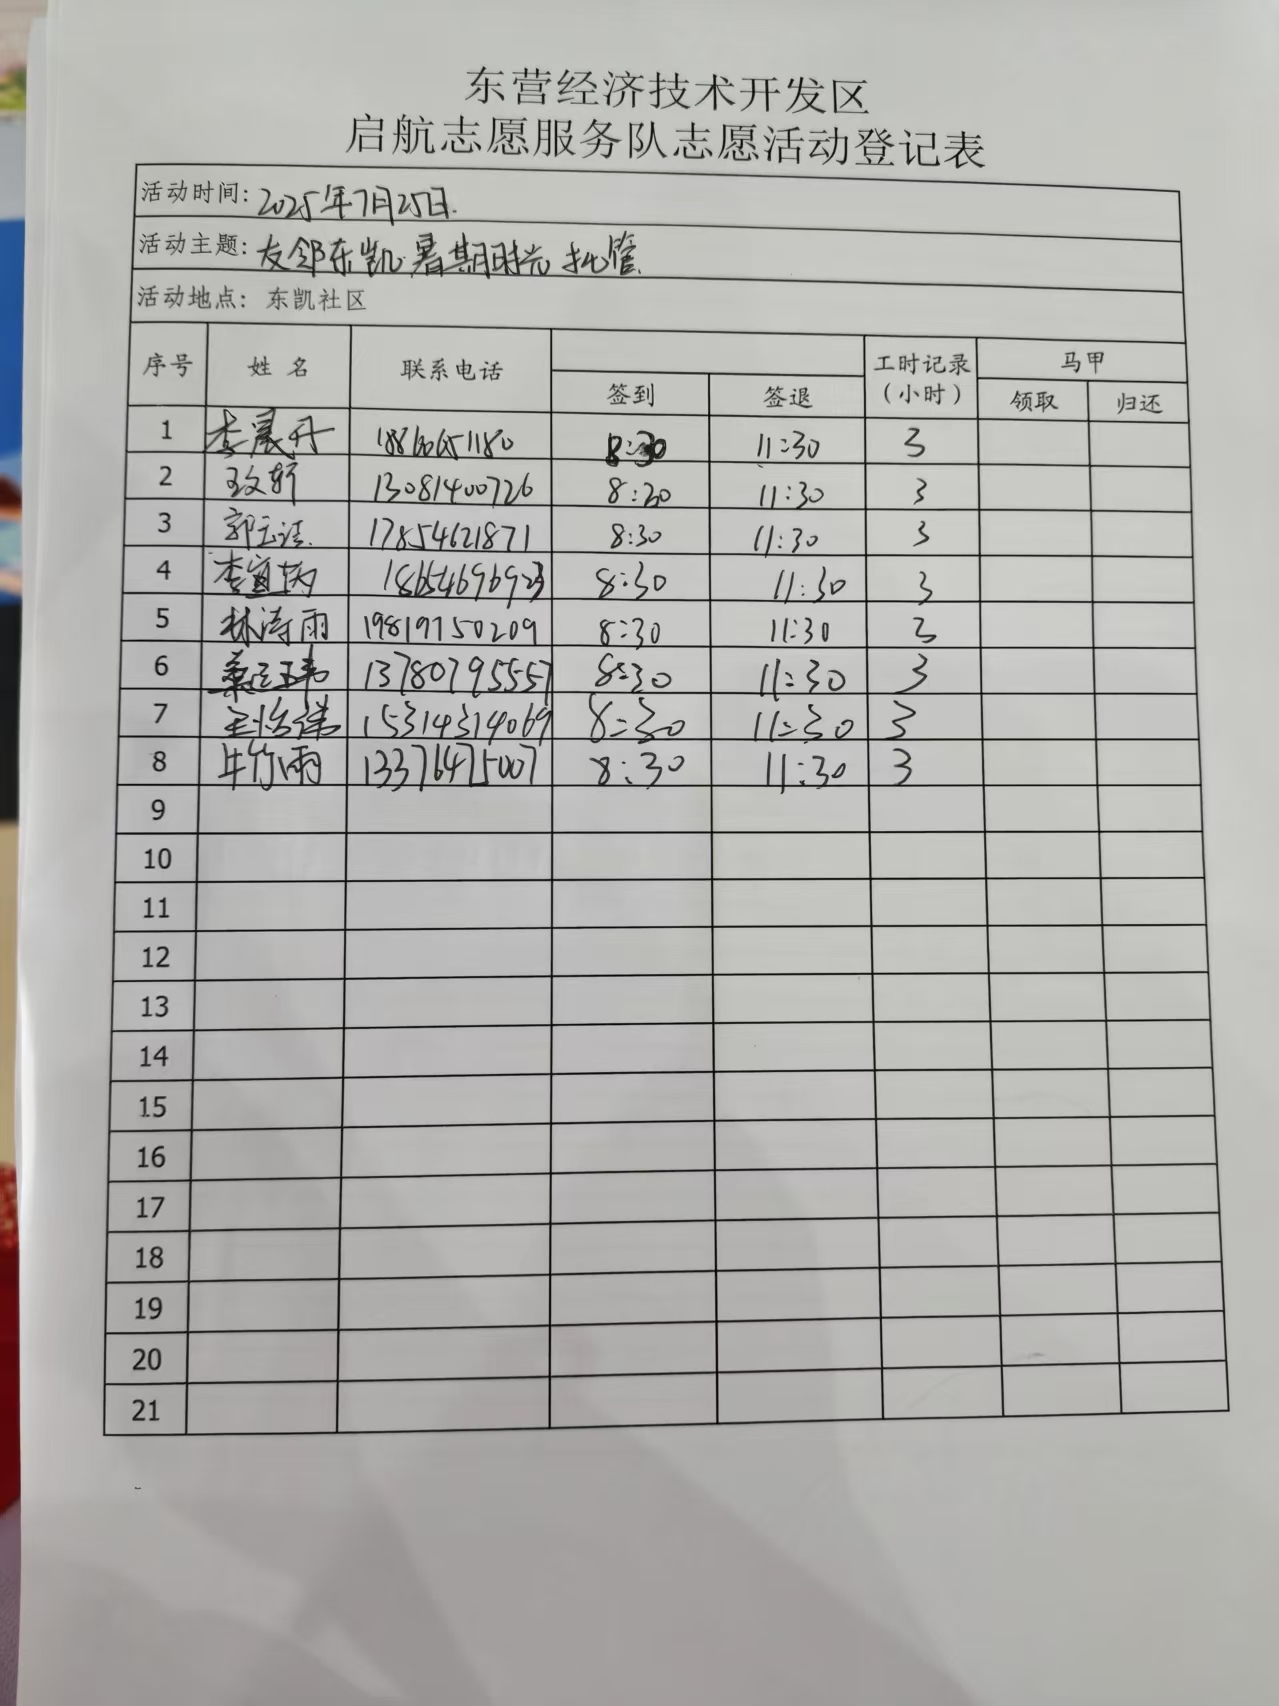 东营经济技术开发区
启航志愿服务队志愿活动登记表
活动时间: 2025年7月25日.
活动主题: 友邻东凯.暑期时光 托管
活动地点: 东凯社区
序号 姓 名 联系电话 签到 签退 工时记录（小时） 马甲 领取 归还
1 李展升 8:30 11:30 3
2 王文轩 13081400726 8:30 11:30 3
3 17854621871 8:30 11:30 3
4 8:30 11:30 3
5 林涛雨 19819750209 8:30 11:30 3
6 13780795557 8:30 11:30 3
7 15314314069 8:30 11:30 3
8 牛竹雨 13376475007 8:30 11:30 3
9
10
11
12
13
14
15
16
17
18
19
20
21